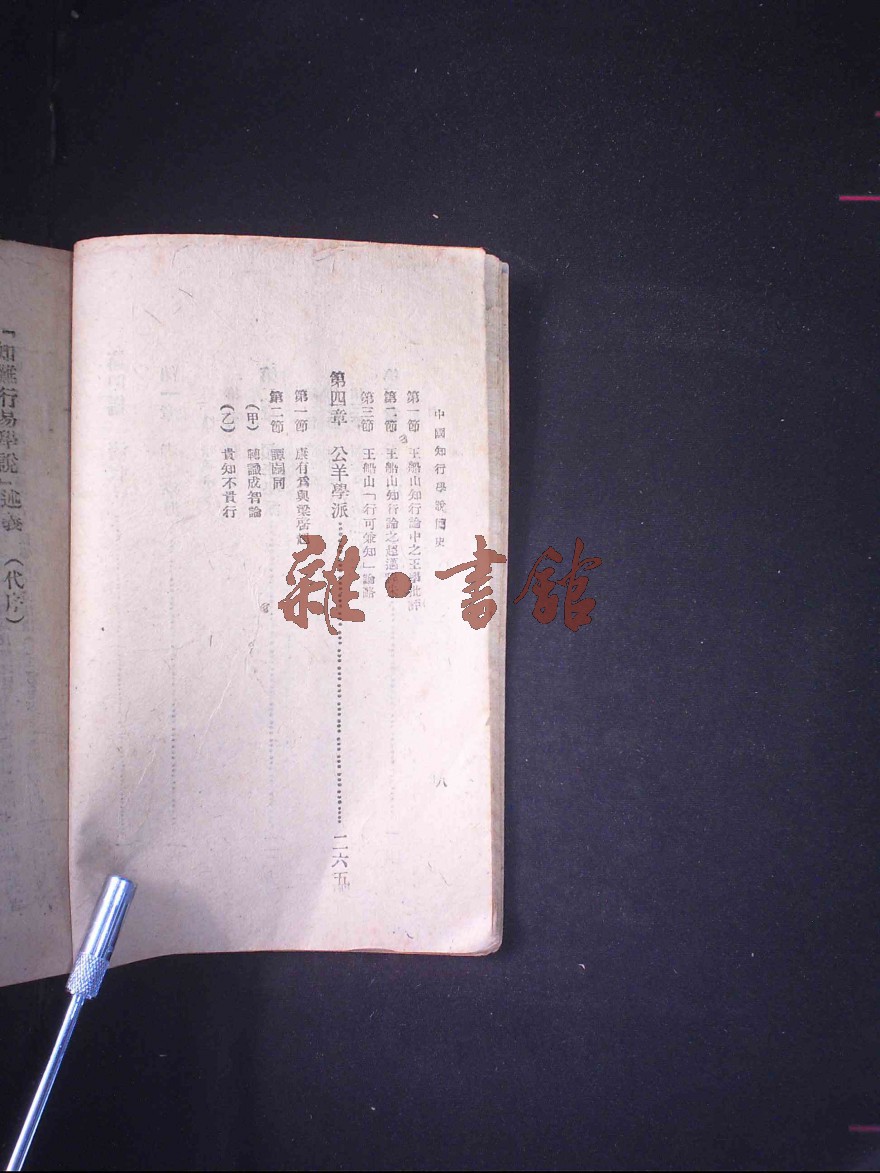 中國知行學說簡史
第一節 王船山知行論中之王學批評
第二節 王船山知行論之超過
第三節 王船山「行可兼知」論略
第四章 公羊學派 二六五
第一節 康有爲與梁啓超
第二節 譚嗣同
(甲) 轉識成智論
(乙) 貴知不貴行
八
「知難行易學說」述義 (代序)
雜・書館